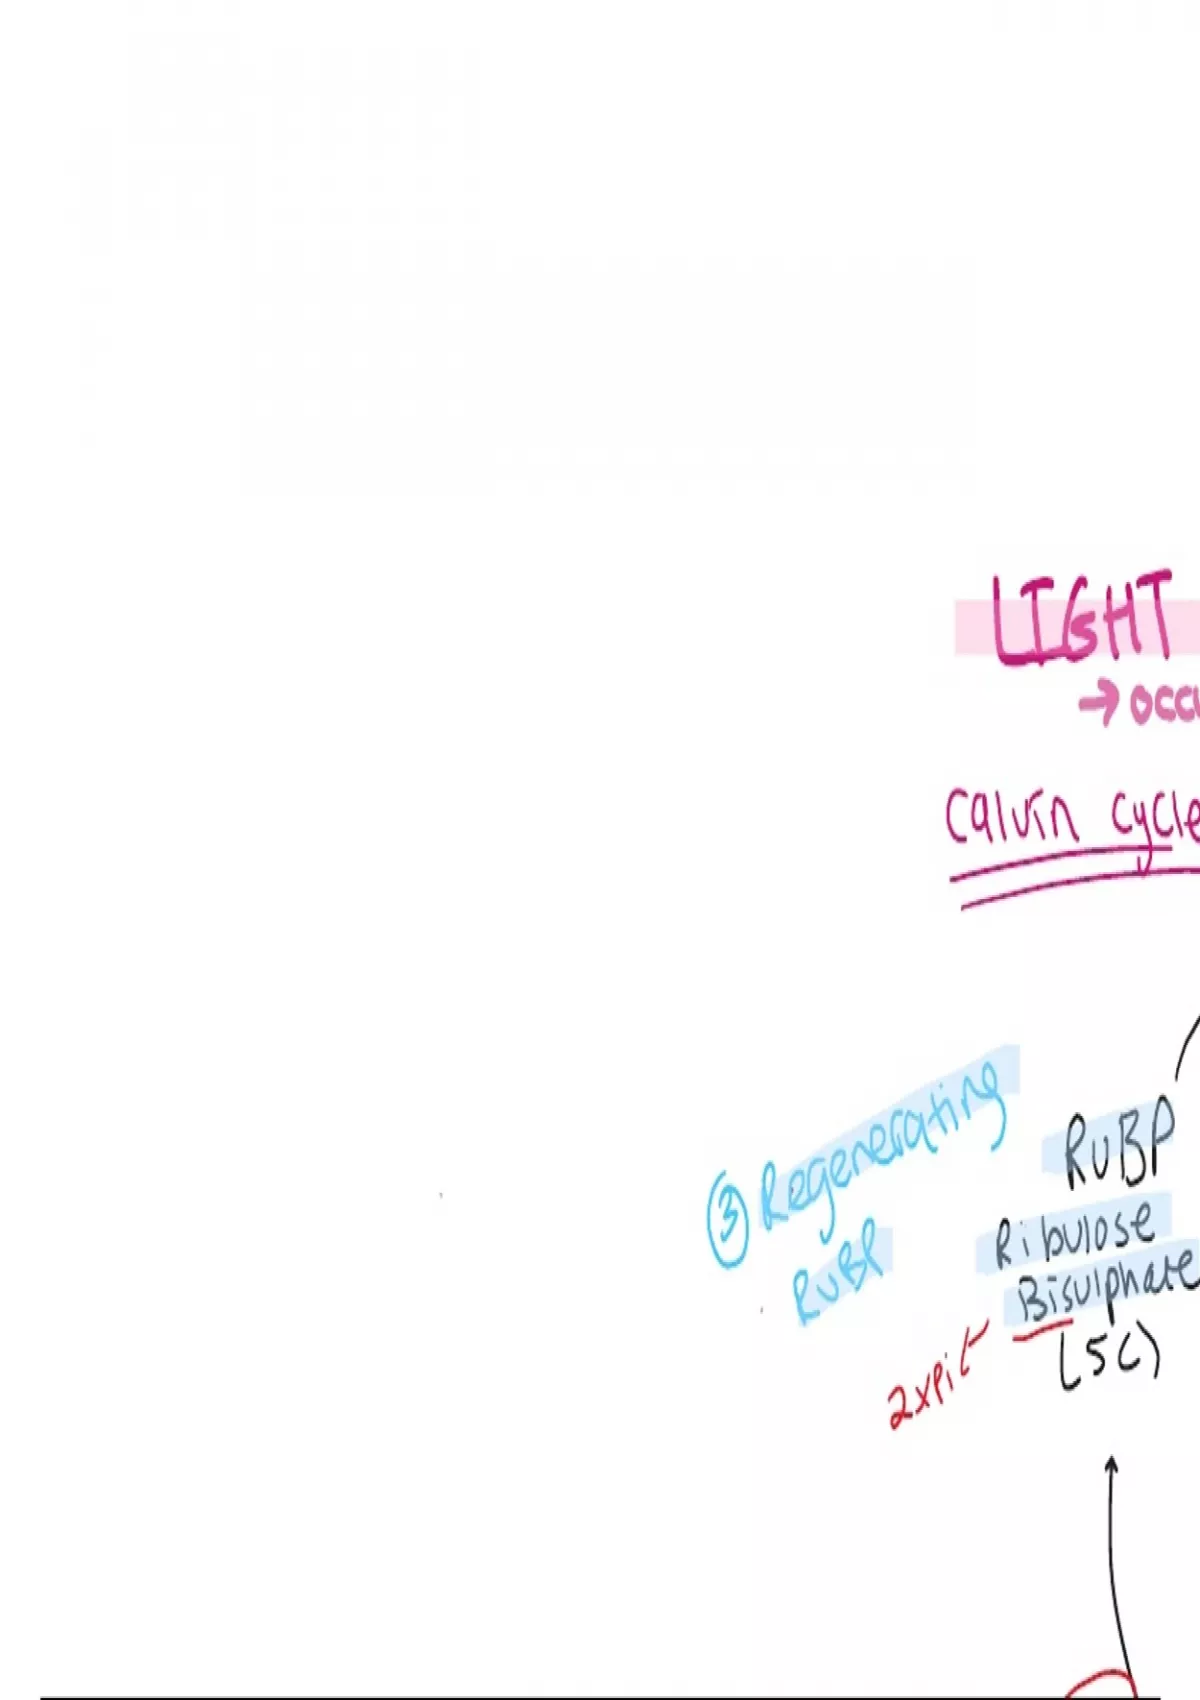 LIGHT
→ occu
Calvin cycle
③ Regenerating
RuBP
RuBP
Ribulose
Bisulphate
(5C)